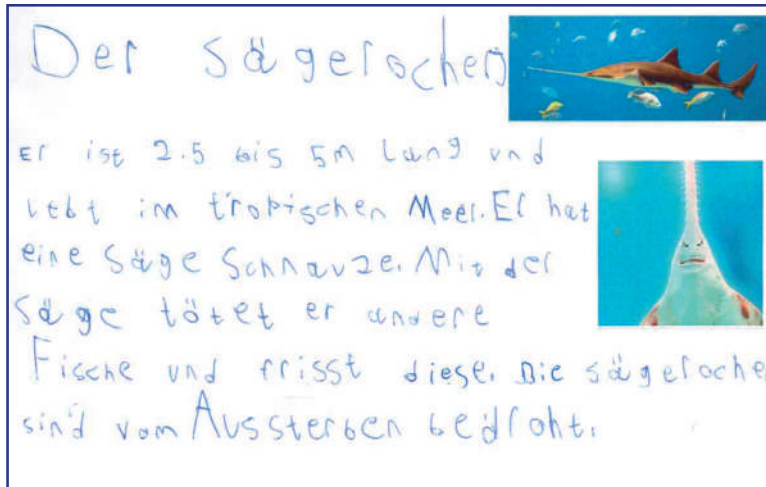 Der Sägerochen
Er ist 2.5 bis 5m lang und
lebt im tropischen Meer. Er hat
eine Säge Schnauze. Mit der
Säge tötet er andere
Fische und frisst diese. Die Sägeroche
sind vom Aussterben bedroht.